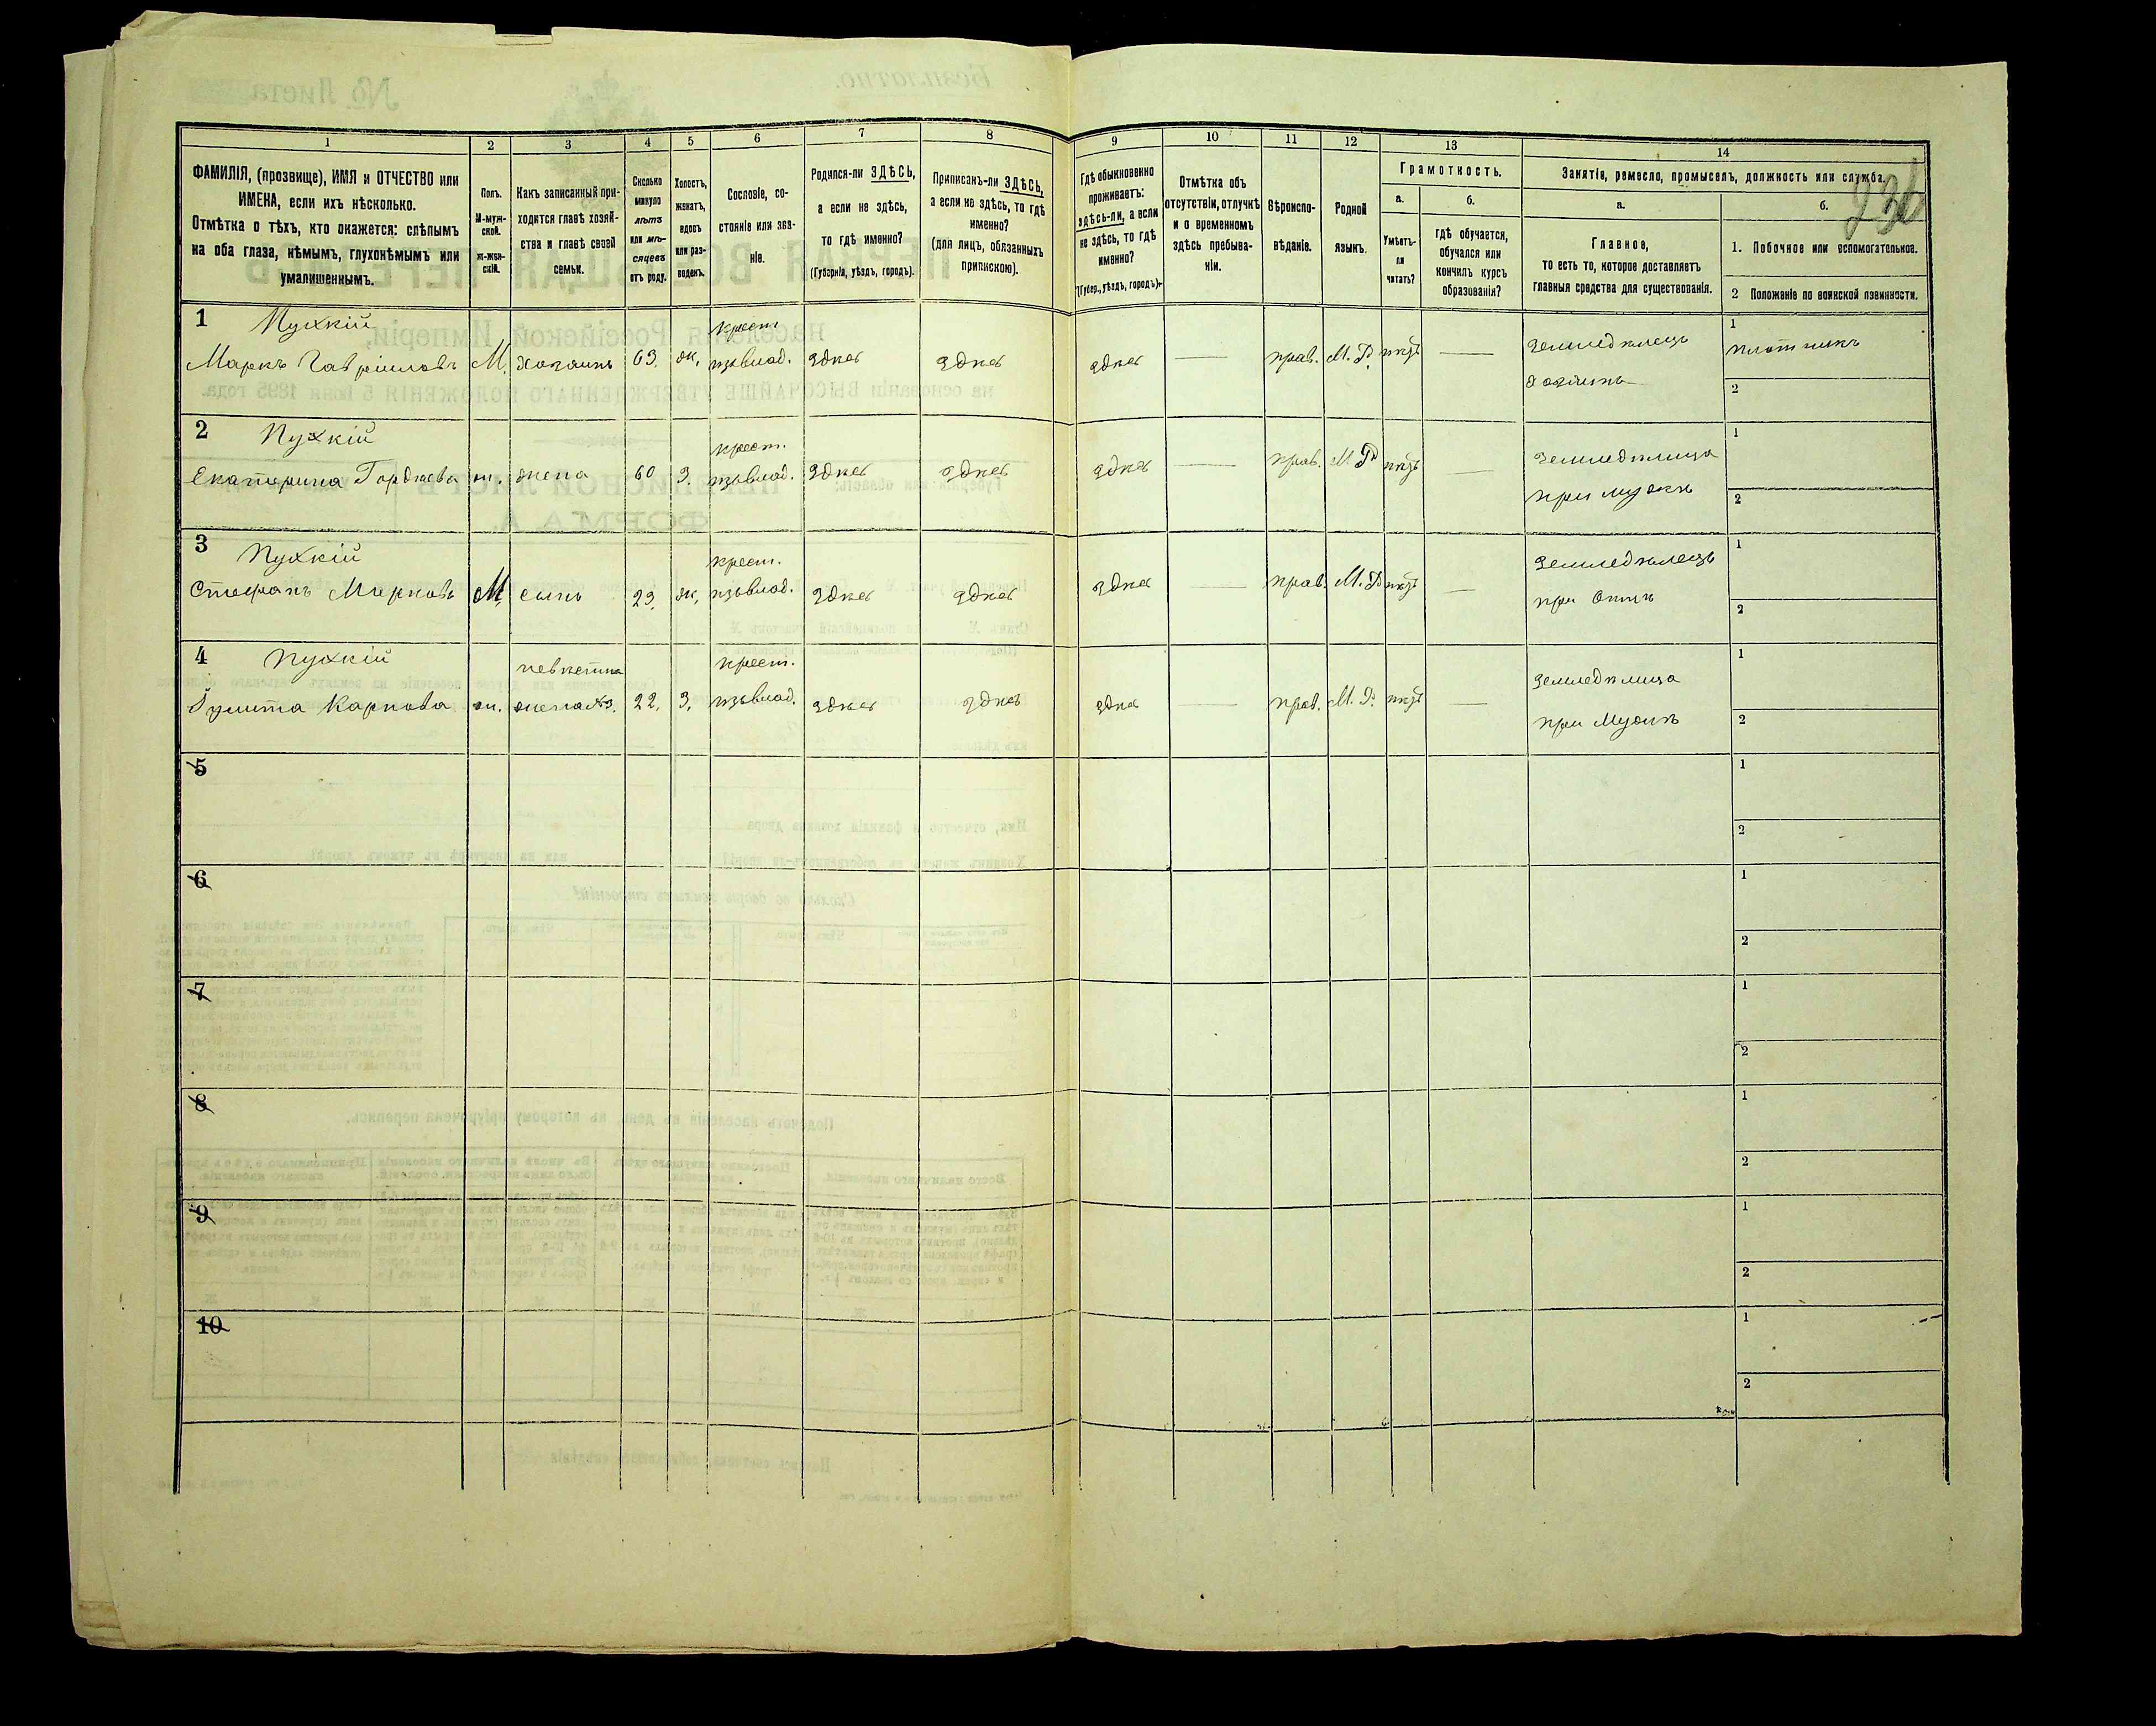 1 2 3 4 5 6 7 8 9 10 11 12 13 14
ФАМИЛІЯ, (прозвище), ИМЯ и ОТЧЕСТВО или ИМЕНА, если ихъ нѣсколько.
Отмѣтка о тѣхъ, кто окажется: слѣпымъ на оба глаза, нѣмымъ, глухонѣмымъ или умалишеннымъ.
Полъ.
М-мужской.
Ж-женскій.
Какъ записанный приходится главѣ хозяйства и главѣ своей семьи.
Сколько минуло лѣтъ или мѣсяцевъ отъ роду.
Холостъ, женатъ, вдовъ или разведенъ.
Сословіе, состояніе или званіе.
Родился-ли ЗДѢСЬ, а если не здѣсь, то гдѣ именно?
(Губернія, уѣздъ, городъ).
Приписанъ-ли ЗДѢСЬ, а если не здѣсь, то гдѣ именно?
(для лицъ, обязанныхъ припискою).
Гдѣ обыкновенно проживаетъ: здѣсь-ли, а если не здѣсь, то гдѣ именно?
(Губер., уѣздъ, городъ).
Отмѣтка объ отсутствіи, отлучкѣ и о временномъ здѣсь пребываніи.
Вѣроисповѣданіе.
Родной языкъ.
Грамотность.
а.
Умѣетъ-ли читать?
б.
гдѣ обучается, обучался или кончилъ курсъ образованія?
Занятіе, ремесло, промыселъ, должность или служба.
236
а.
Главное,
то есть то, которое доставляетъ главныя средства для существованія.
б.
1. Побочное или вспомогательное.
2 Положеніе по воинской повинности.
1 Пухкій крест. Земледѣлецъ 1
Маркъ Гавриловъ М. Хозяинъ 63. ж. здѣсь здѣсь здѣсь — прав. М. Р. нѣтъ — хозяинъ плотникъ
2
2 Пухкій крест. Земледѣлица 1
Екатерина Гордѣева ж. жена 60 З. здѣсь здѣсь здѣсь — прав. М. Р. нѣтъ — при мужѣ 2
3 Пухкій крест. Земледѣлецъ 1
Стефанъ Марковъ М. сынъ 23. ж. здѣсь здѣсь здѣсь — прав. М. Р. нѣтъ — при Отцѣ 2
4 Пухкій невѣстка крест. Земледѣлица 1
Карпова ж. жена №3. 22. З. здѣсь здѣсь здѣсь — прав. М. Р. нѣтъ — при Мужѣ 2
5 1
2
6 1
2
7 1
2
8 1
2
9 1
2
10 1
2